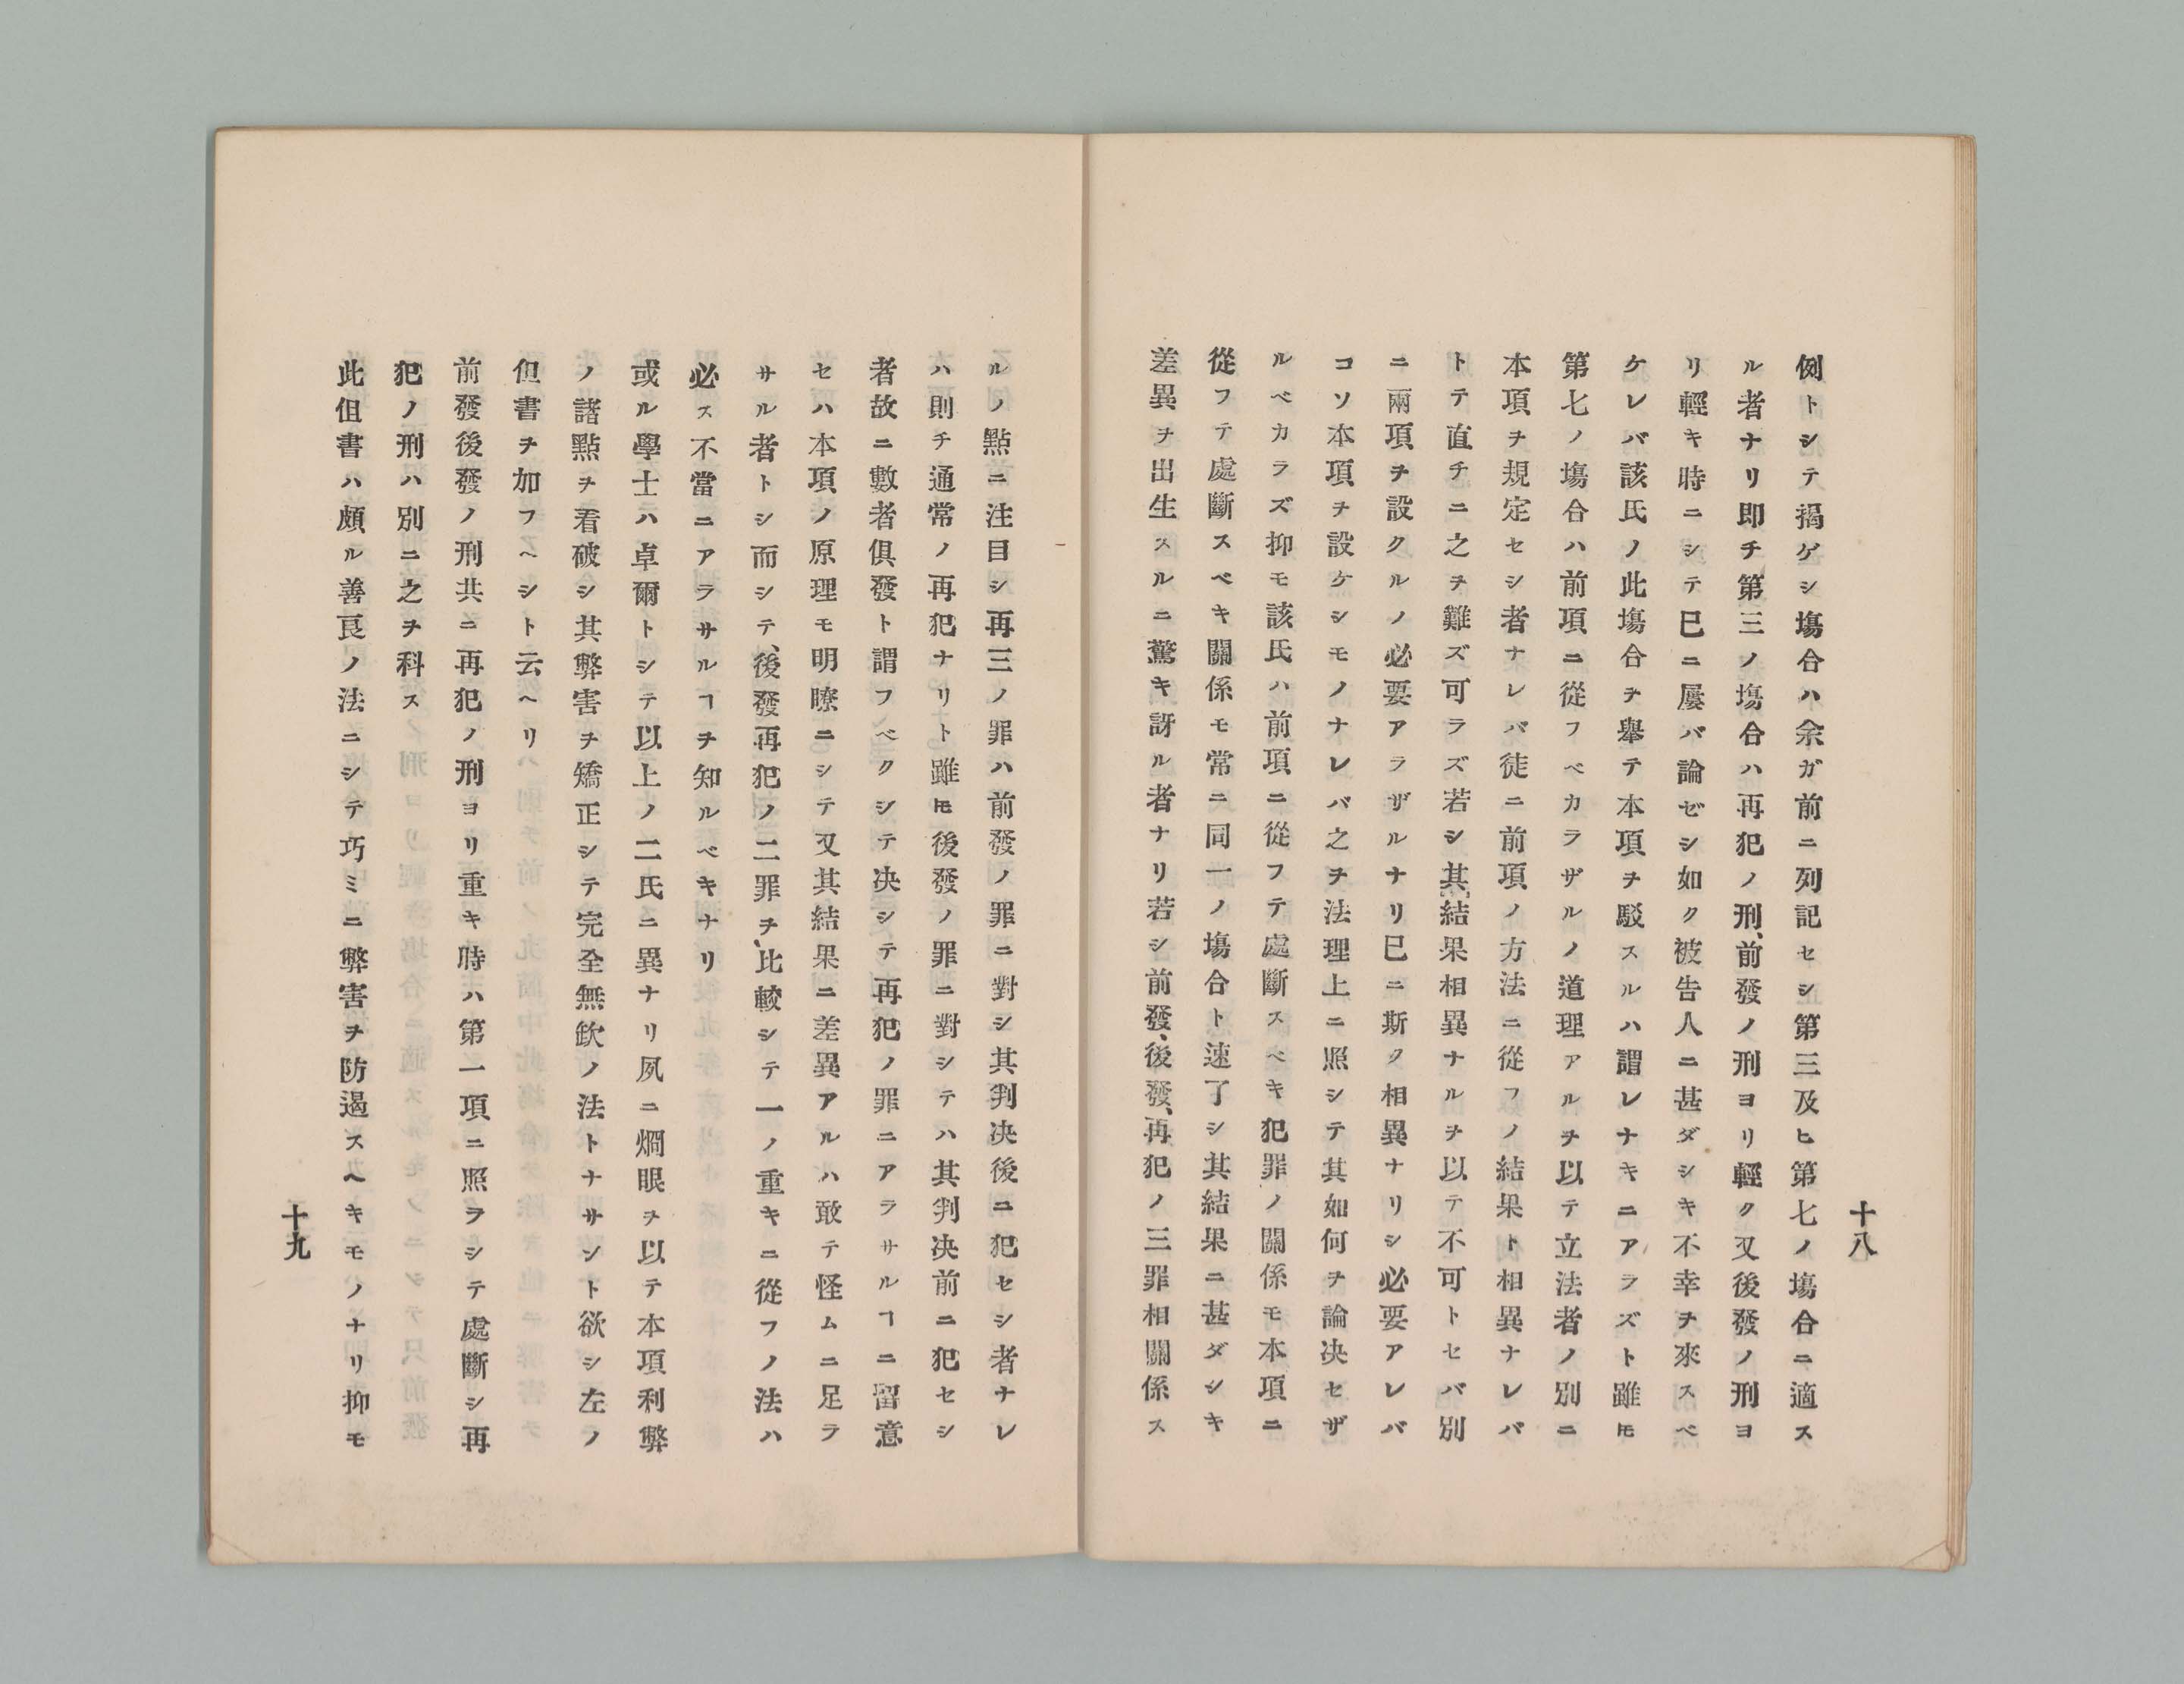 十八
例トシテ揭ゲシ塲合ハ余ガ前ニ列記セシ第三及ヒ第七ノ塲合ニ適ス
ル者ナリ即チ第三ノ塲合ハ再犯ノ刑、前發ノ刑ヨリ輕ク又後發ノ刑ヨ
リ輕キ時ニシテ已ニ屢バ論ゼシ如ク被告人ニ甚ダシキ不幸ヲ來スベ
ケレバ該氏ノ此塲合ヲ擧テ本項ヲ駁スルハ謂レナキニアラズト雖𪜈
第七ノ塲合ハ前項ニ從フベカラザルノ道理アルヲ以テ立法者ノ別ニ
本項ヲ規定セシ者ナレバ徒ニ前項ノ方法ニ從フノ結果ト相異ナレバ
トテ直チニ之ヲ難ズ可ラズ若シ其結果相異ナルヲ以テ不可トセバ別
ニ兩項ヲ設クルノ必要アラザルナリ已ニ斯ク相異ナリシ必要アレバ
コソ本項ヲ設ケシモノナレバ之ヲ法理上ニ照シテ其如何ヲ論决セザ
ルベカラズ抑モ該氏ハ前項ニ從フテ處斷スベキ犯罪ノ關係モ本項ニ
從フテ處斷スベキ關係モ常ニ同一ノ塲合ト速了シ其結果ニ甚ダシキ
差異ヲ出生スルニ驚キ訝ル者ナリ若シ前發、後發、再犯ノ三罪相關係ス
ルノ點ニ注目シ再三ノ罪ハ前發ノ罪ニ對シ其判决後ニ犯セシ者ナレ
ハ則チ通常ノ再犯ナリト雖𪜈後發ノ罪ニ對シテハ其判决前ニ犯セシ
者故ニ數者俱發ト謂フベクシテ决シテ再犯ノ罪ニアラサルヿニ留意
セハ本項ノ原理モ明瞭ニシテ又其結果ニ差異アルハ敢テ怪ムニ足ラ
サル者トシ而シテ、後發再犯ノ二罪ヲ、比較シテ一ノ重キニ從フノ法ハ
必ス不當ニアラサルヿヲ知ルベキナリ
或ル學士ハ卓爾トシテ以上ノ二氏ニ異ナリ夙ニ烱眼ヲ以テ本項利弊
ノ諸點ヲ看破シ其弊害ヲ矯正シテ完全無欽ノ法トナサント欲シ左ノ
但書ヲ加フヘシト云ヘリ
前發後發ノ刑共ニ再犯ノ刑ヨリ重キ時ハ第一項ニ照ラシテ處斷シ再
犯ノ刑ハ別ニ之ヲ科ス
此伹書ハ頗ル善良ノ法ニシテ巧ミニ弊害ヲ防遏スヘキモノナリ抑モ
十九